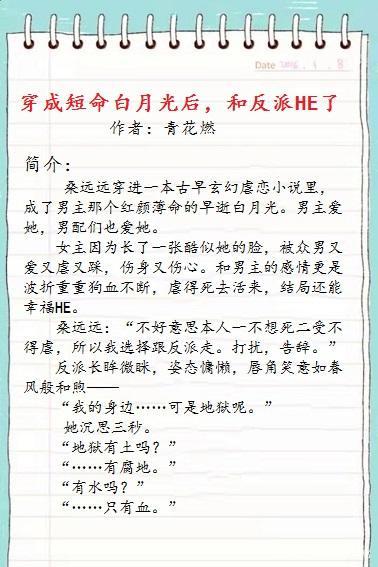 Date
穿成短命白月光后，和反派HE了
作者：青花燃
简介：
桑远远穿进一本古早玄幻虐恋小说里，
成了男主那个红颜薄命的早逝白月光。男主爱
她，男配们也爱她。
女主因为长了一张酷似她的脸，被众男又
爱又虐又踩，伤身又伤心。和男主的感情更是
波折重重狗血不断，虐得死去活来，结局还能
幸福HE。
桑远远：“不好意思本人一不想死二受不
得虐，所以我选择跟反派走。打扰，告辞。”
反派长眸微眯，姿态慵懒，唇角笑意如春
风般和煦——
“我的身边……可是地狱呢。”
她沉思三秒。
“地狱有土吗？”
“……有腐地。”
“有水吗？”
“……只有血。”